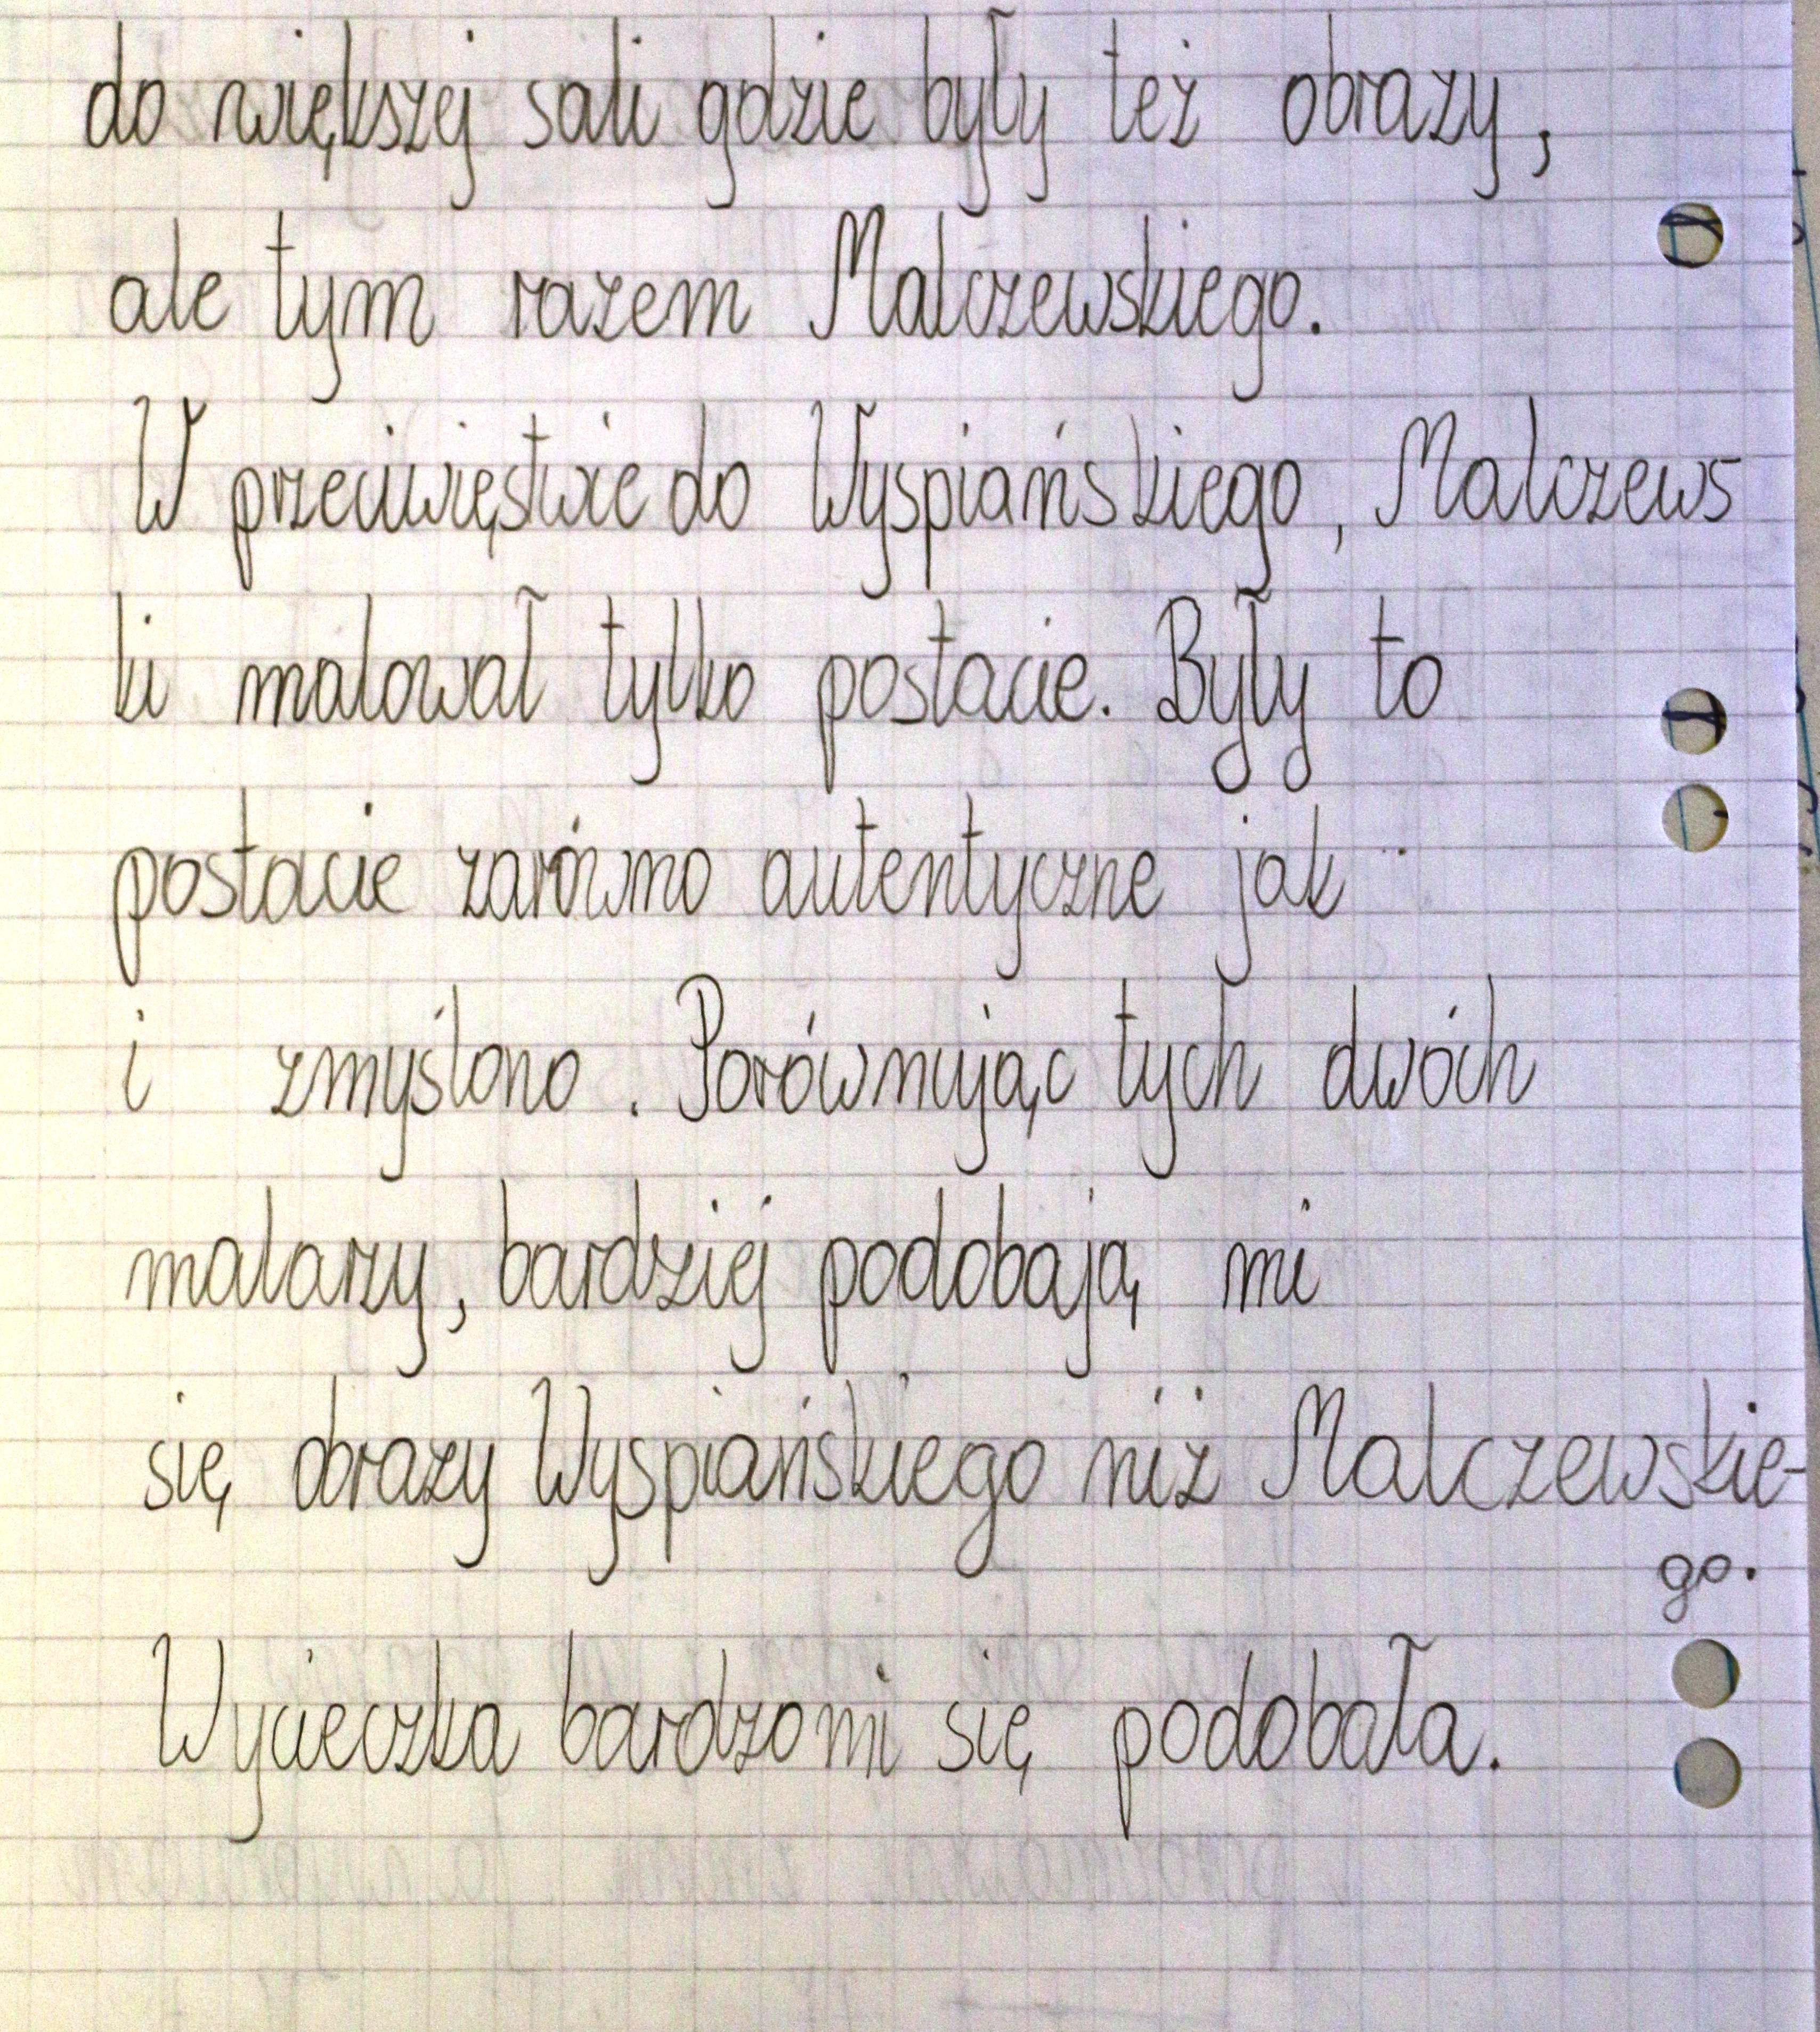 do większej sali gdzie były też obrazy,
ale tym razem Malczewskiego.
W przeciwięstwie do Wyspiańskiego, Malczews
ki malował tylko postacie. Były to
postacie zarówno autentyczne jak
i zmyślono. Porównując tych dwóch
malarzy, bardziej podobają mi
się obrazy Wyspiańskiego niż Malczewskie-
go.
Wycieczka bardzo mi się podobała.